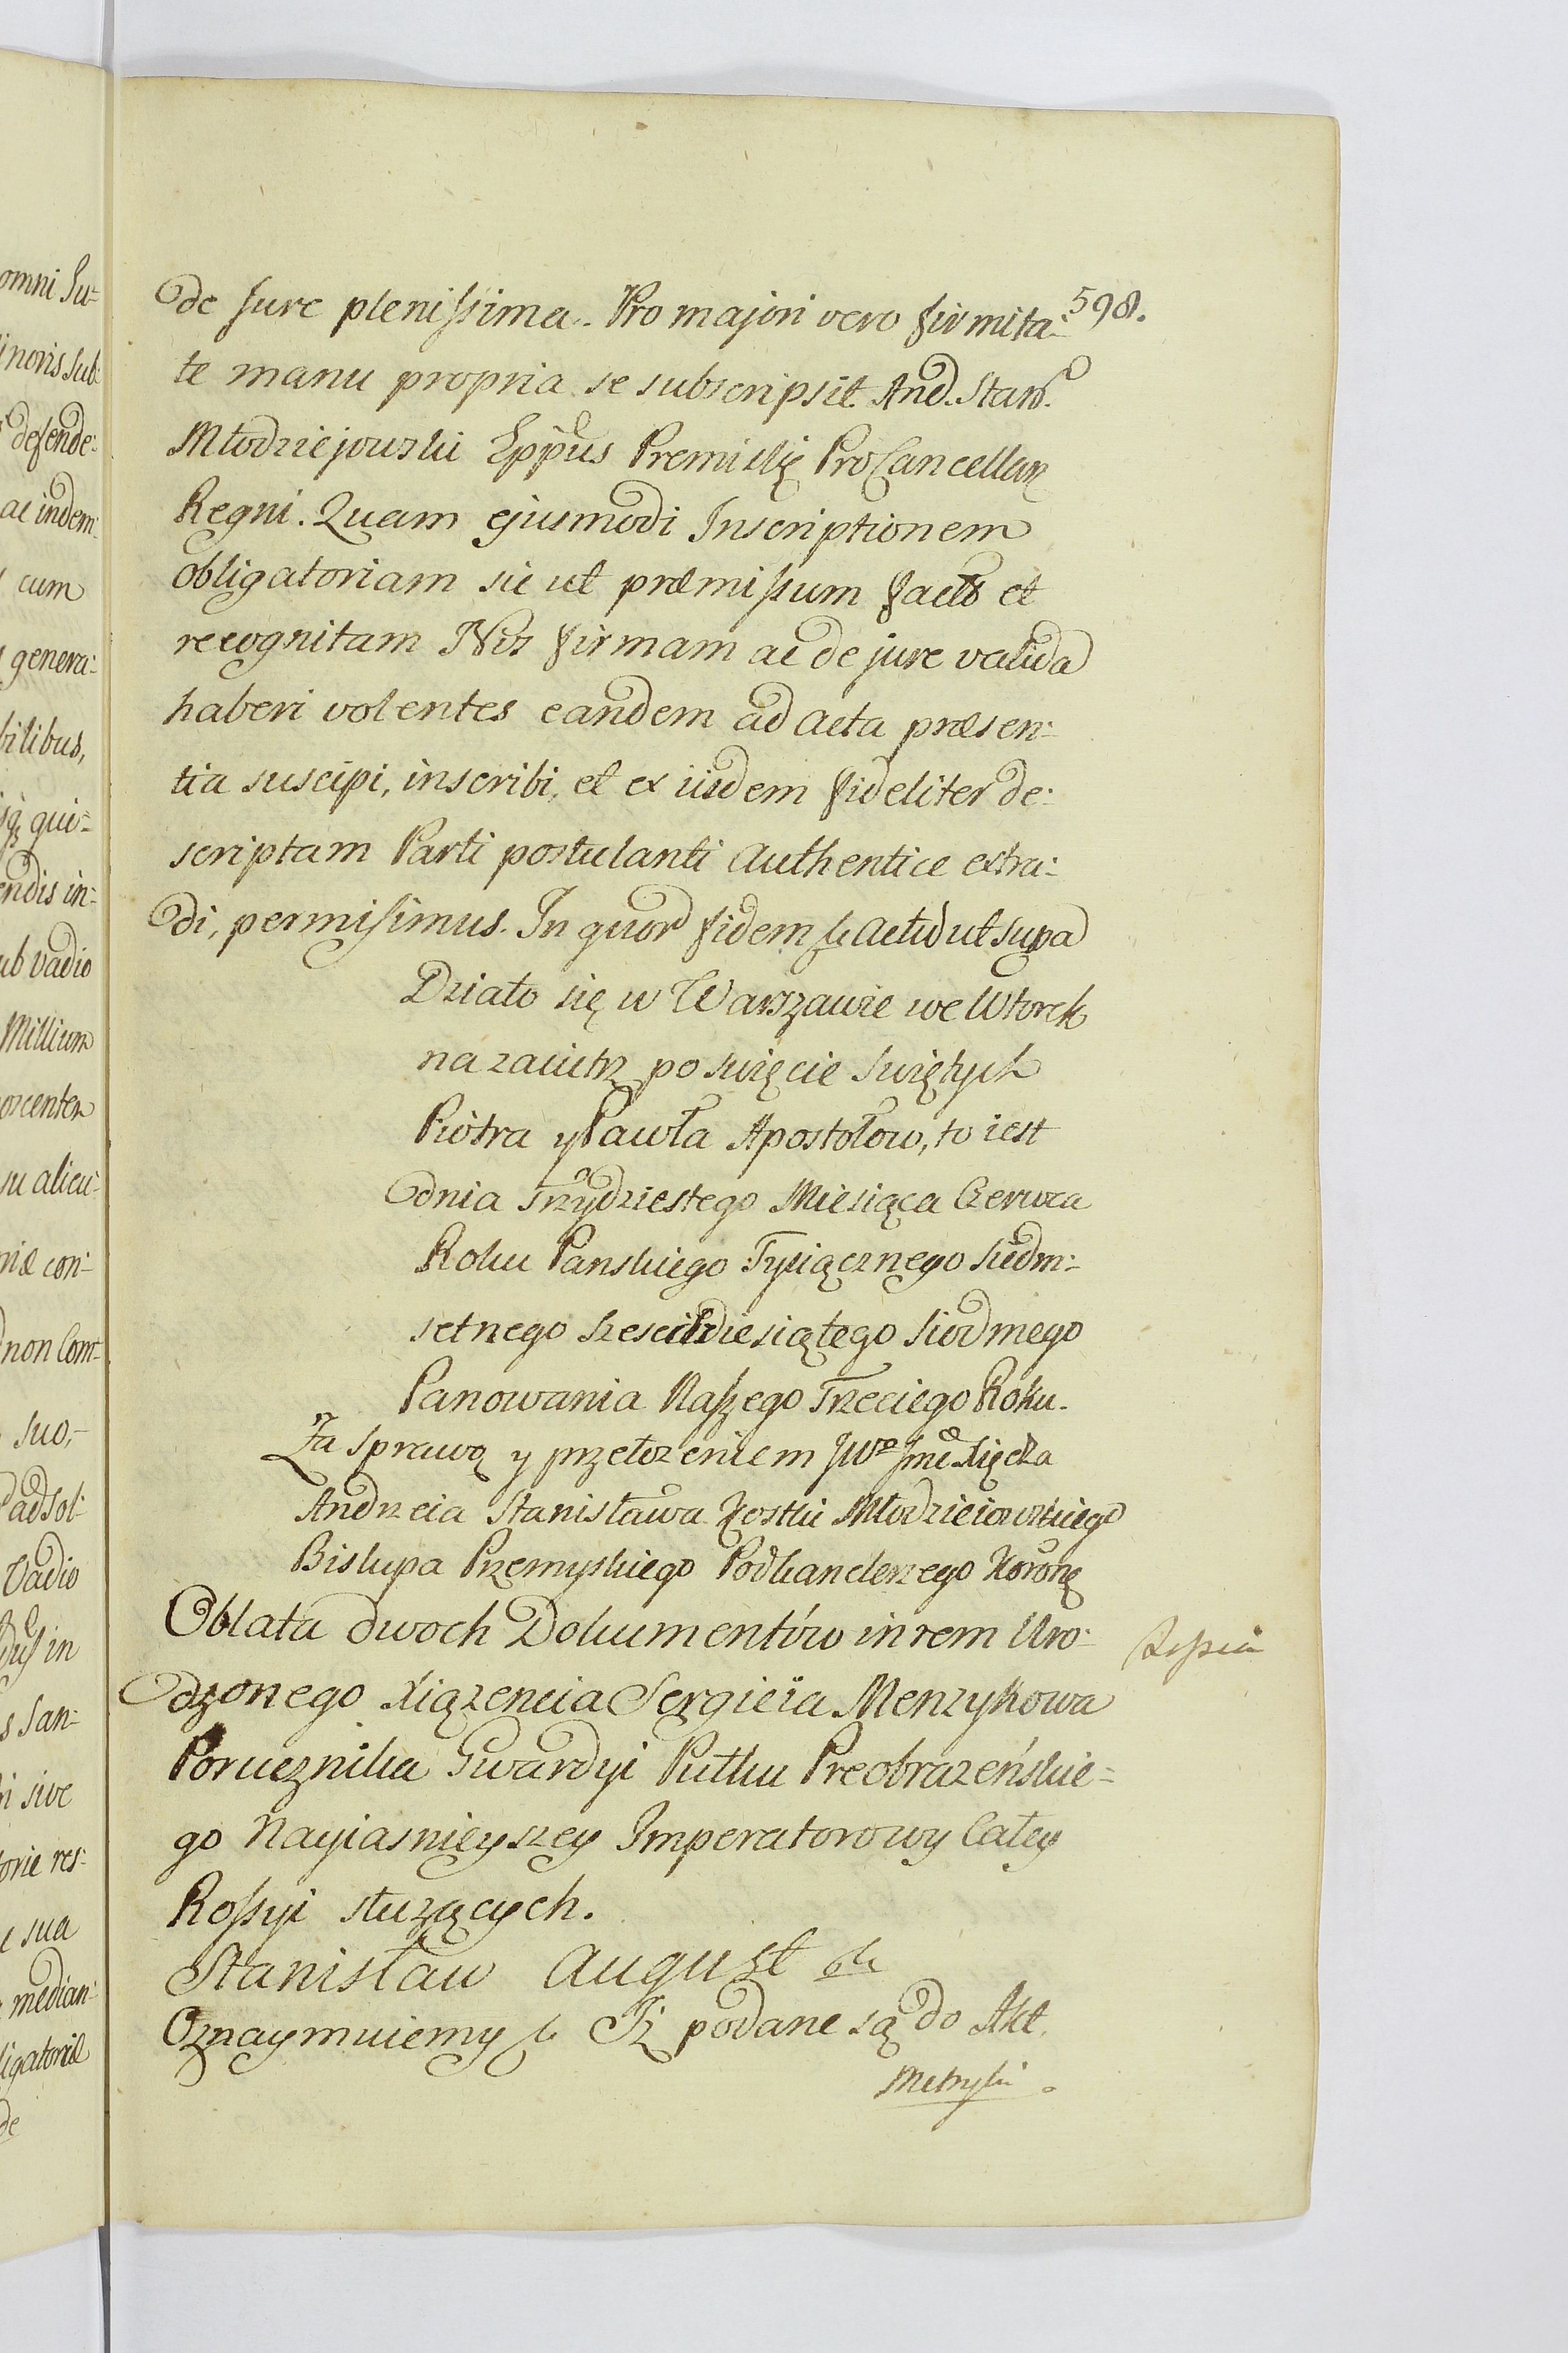 598.
de Jure plenissima. Pro majori vero firmita-
te manu propria se subscripsit And. Stan.
Młodziejowski Eppus Premislię ProCancellar
Regni. Quam ejusmodi Inscriptionem
obligatoriam sic ut præmissum facta et
recognitam Nos firmam ac de jure valida
haberi volentes eandem ad acta præsen-
tia suscipi, inscribi, et ex iisdem fideliter de-
scriptam Parti postulanti authentice extra-
di, permisimus. In quor fidem & Actu ut supa
Działo się w Warszawie we Wtorek
nazaiutrz po swięcie swiętych
Piotra y Pawła Apostołow, to iest
dnia Trzydziestego Miesiąca Czerwca
Roku Panskiego Tysiącznego siedm-
setnego szescdziesiątego siodmego
Panowania Naszego Trzeciego Roku.
Za sprawą y przełożeniem JWo Jmc Xiędza
Andrzeia Stanisława Kostki Młodzieiowskiego
Biskupa Przemyskiego Podkanclerzego Koronę
Oblata dwoch Dokumentów in rem Uro-
dzonego Xiązencia Sergieia Menzykowa
Porucznika Gwardyi Pułku Preobrazeńskie-
go Nayiasnieyszey Imperatorowy Całey
Rossyi służących.
Stanisław August &c
Oznaymuiemy & Iż podane są do Akt
Metryki